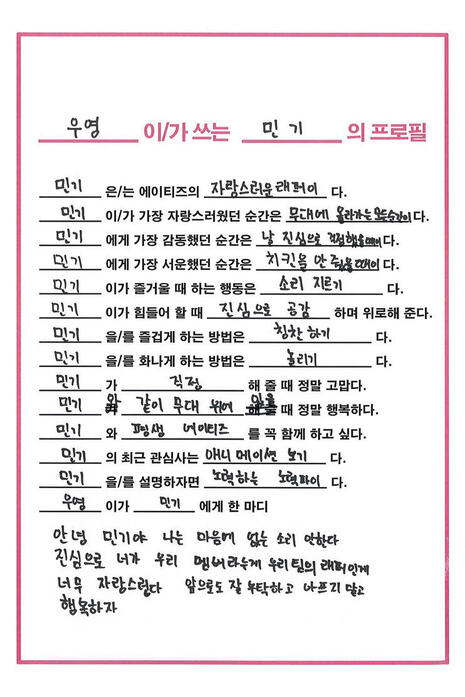 우영 이/가 쓰는 민기 의 프로필
민기 은/는 에이티즈의 자랑스러운 래퍼이 다.
민기 이/가 가장 자랑스러웠던 순간은 무대에 올라가는 모든순간이다.
민기 에게 가장 감동했던 순간은 날 진심으로 걱정했을때이다.
민기 에게 가장 서운했던 순간은 치킨을 안 줬을때이다.
민기 이가 즐거울 때 하는 행동은 소리 지르기 다.
민기 이가 힘들어 할 때 진심으로 공감 하며 위로해 준다.
민기 을/를 즐겁게 하는 방법은 칭찬하기 다.
민기 을/를 화나게 하는 방법은 놀리기 다.
민기 가 걱정 해 줄 때 정말 고맙다.
민기 와 같이 무대 위에 있을 때 정말 행복하다.
민기 와 평생 에이티즈 를 꼭 함께 하고 싶다.
민기 의 최근 관심사는 애니메이션 보기 다.
민기 을/를 설명하자면 노력하는 노력파이 다.
우영 이가 민기 에게 한 마디
안녕 민기야 나는 마음에 없는 소리 안한다
진심으로 너가 우리 멤버라는게 우리팀의 래퍼인게
너무 자랑스럽다 앞으로도 잘 부탁하고 아프지 말고
행복하자